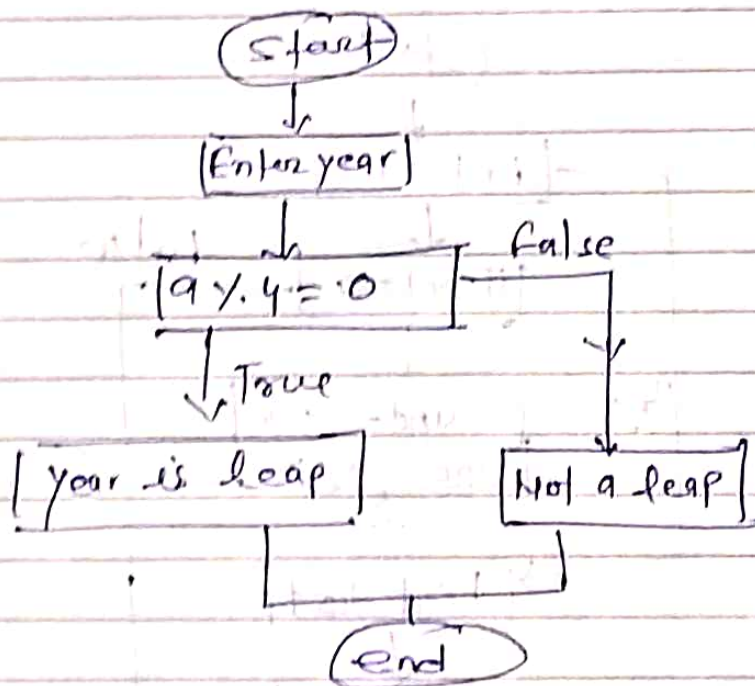 Start
Enter year
False
a % 4 = 0
True
year is leap
Not a leap
end